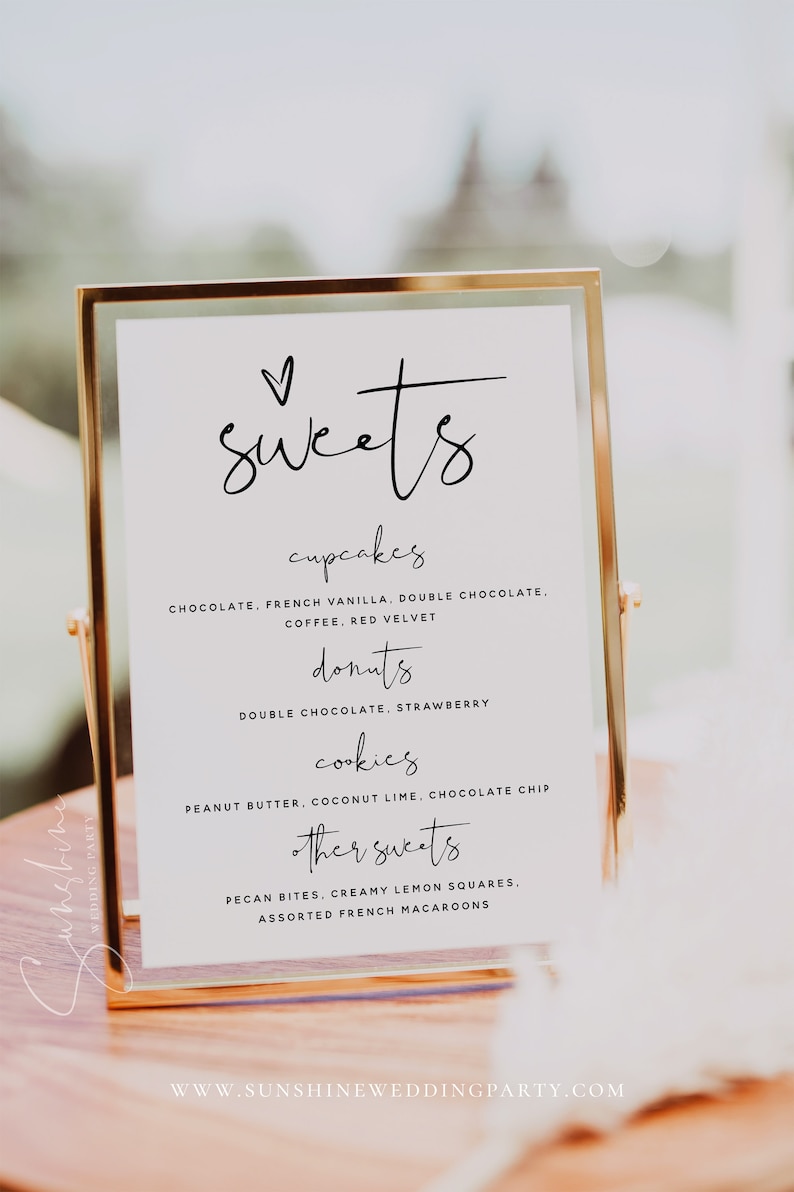 sweets
cupcakes
CHOCOLATE, FRENCH VANILLA, DOUBLE CHOCOLATE,
COFFEE, RED VELVET
donuts
DOUBLE CHOCOLATE, STRAWBERRY
cookies
PEANUT BUTTER, COCONUT LIME, CHOCOLATE CHIP
other sweets
PECAN BITES, CREAMY LEMON SQUARES,
ASSORTED FRENCH MACAROONS
Sunshine
WEDDING PARTY
WWW.SUNSHINEWEDDINGPARTY.COM